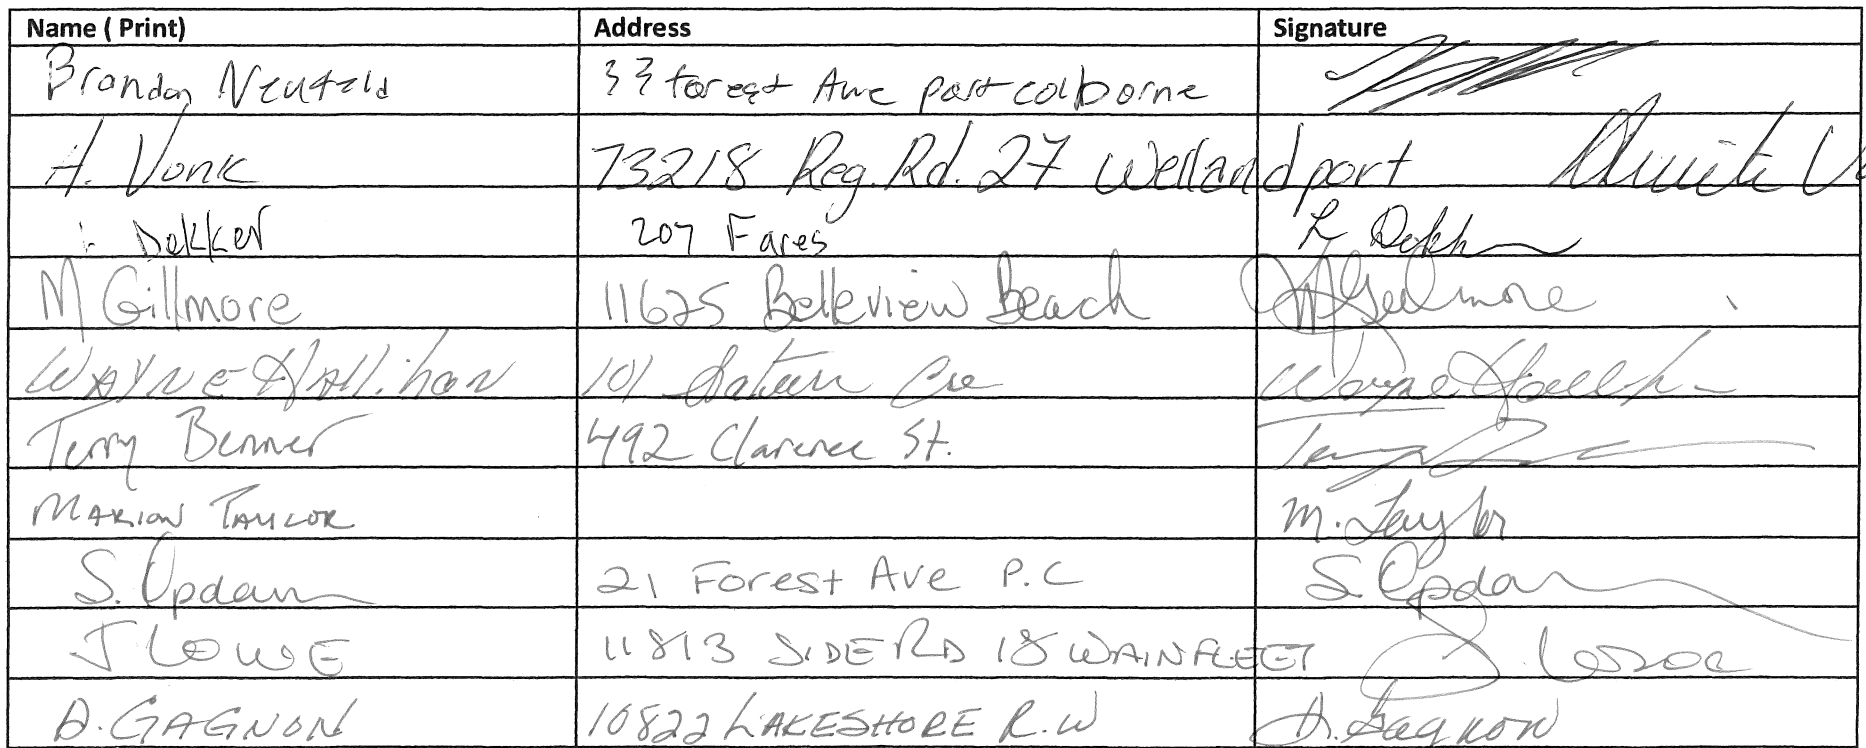 Name ( Print) Address Signature
Brandon Neufeld 33 forest Ave port colborne
H. Vonk 73218 Reg. Rd. 27 Wellandport
Dekker 207 Fares L Dekk
M Gillmore 11625 Belleview Beach M Gillmore
WAYNE HAllihan 101 Cre Wayne
Terry Benner 492 Clarence St. Terry
MARION TAYLOR M. Taylor
S. Updam 21 Forest Ave P.C S. Updam
J LOWE 11813 SIDE RD 18 WAINFLEET J. Lowe
D. GAGNON 10822 LAKESHORE R.W D. Gagnon